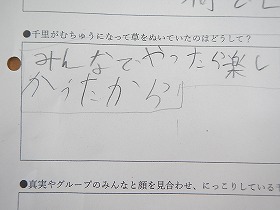 ●千里がむちゅうになって草をぬいていたのはどうして？
みんなでやったら楽し
かったから
●真実やグループのみんなと顔を見合わせ、にっこりしている千